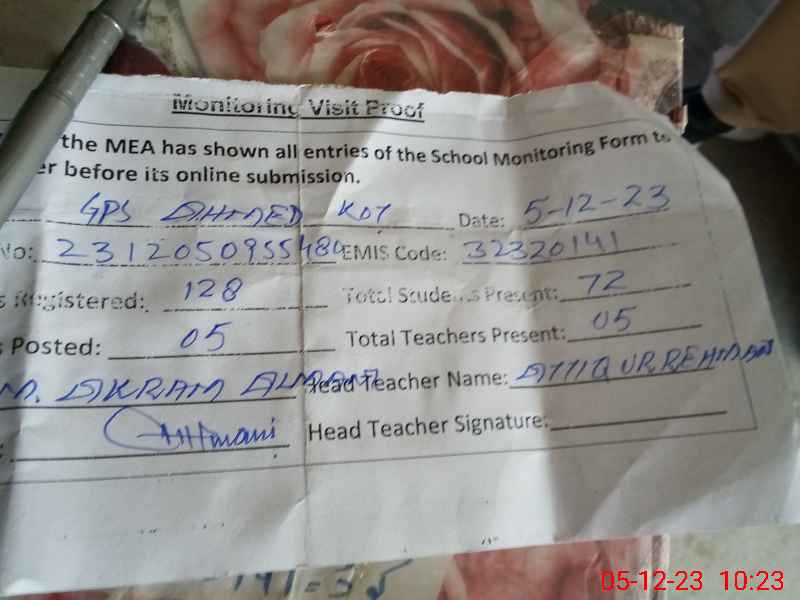 Monitoring Visit Proof
the MEA has shown all entries of the School Monitoring Form to
er before its online submission.
GPS AHMED KOT Date: 5-12-23
No: 2312050955484 EMIS Code: 32320141
s Registered: 128 Total Students Present: 72
s Posted: 05 Total Teachers Present: 05
M. AKRAM Head Teacher Name: ATTIQ UR REHMAN
Head Teacher Signature:
05-12-23 10:23